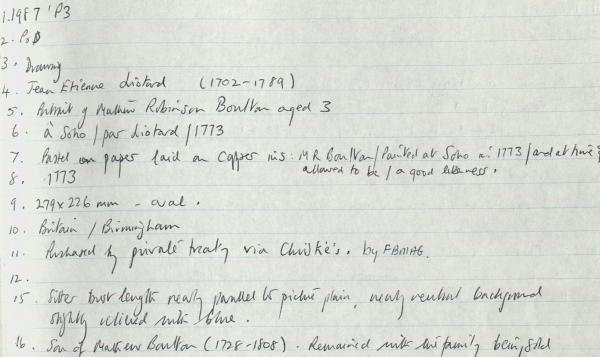 1. 1987 'P3
2. PsD
3. Drawing
4. Jean Etienne Liotard (1702-1789)
5. Portrait of Mathew Robinson Boulton aged 3
6. à Soho / par Liotard / 1773
7. Pastel on paper laid on copper ins: M R Boulton / Painted at Soho in 1773 / and at time
8. 1773 allowed to be / a good likeness.
9. 279 x 226 mm - oval.
10. Britain / Birmingham
11. Purchased by private treaty via Christie's. by FBMAG.
12.
15. Sitter bust length nearly parallel to picture plain, nearly neutral background
slightly relieved with blue.
16. Son of Mathew Boulton (1728-1808). Remained with the family being sold